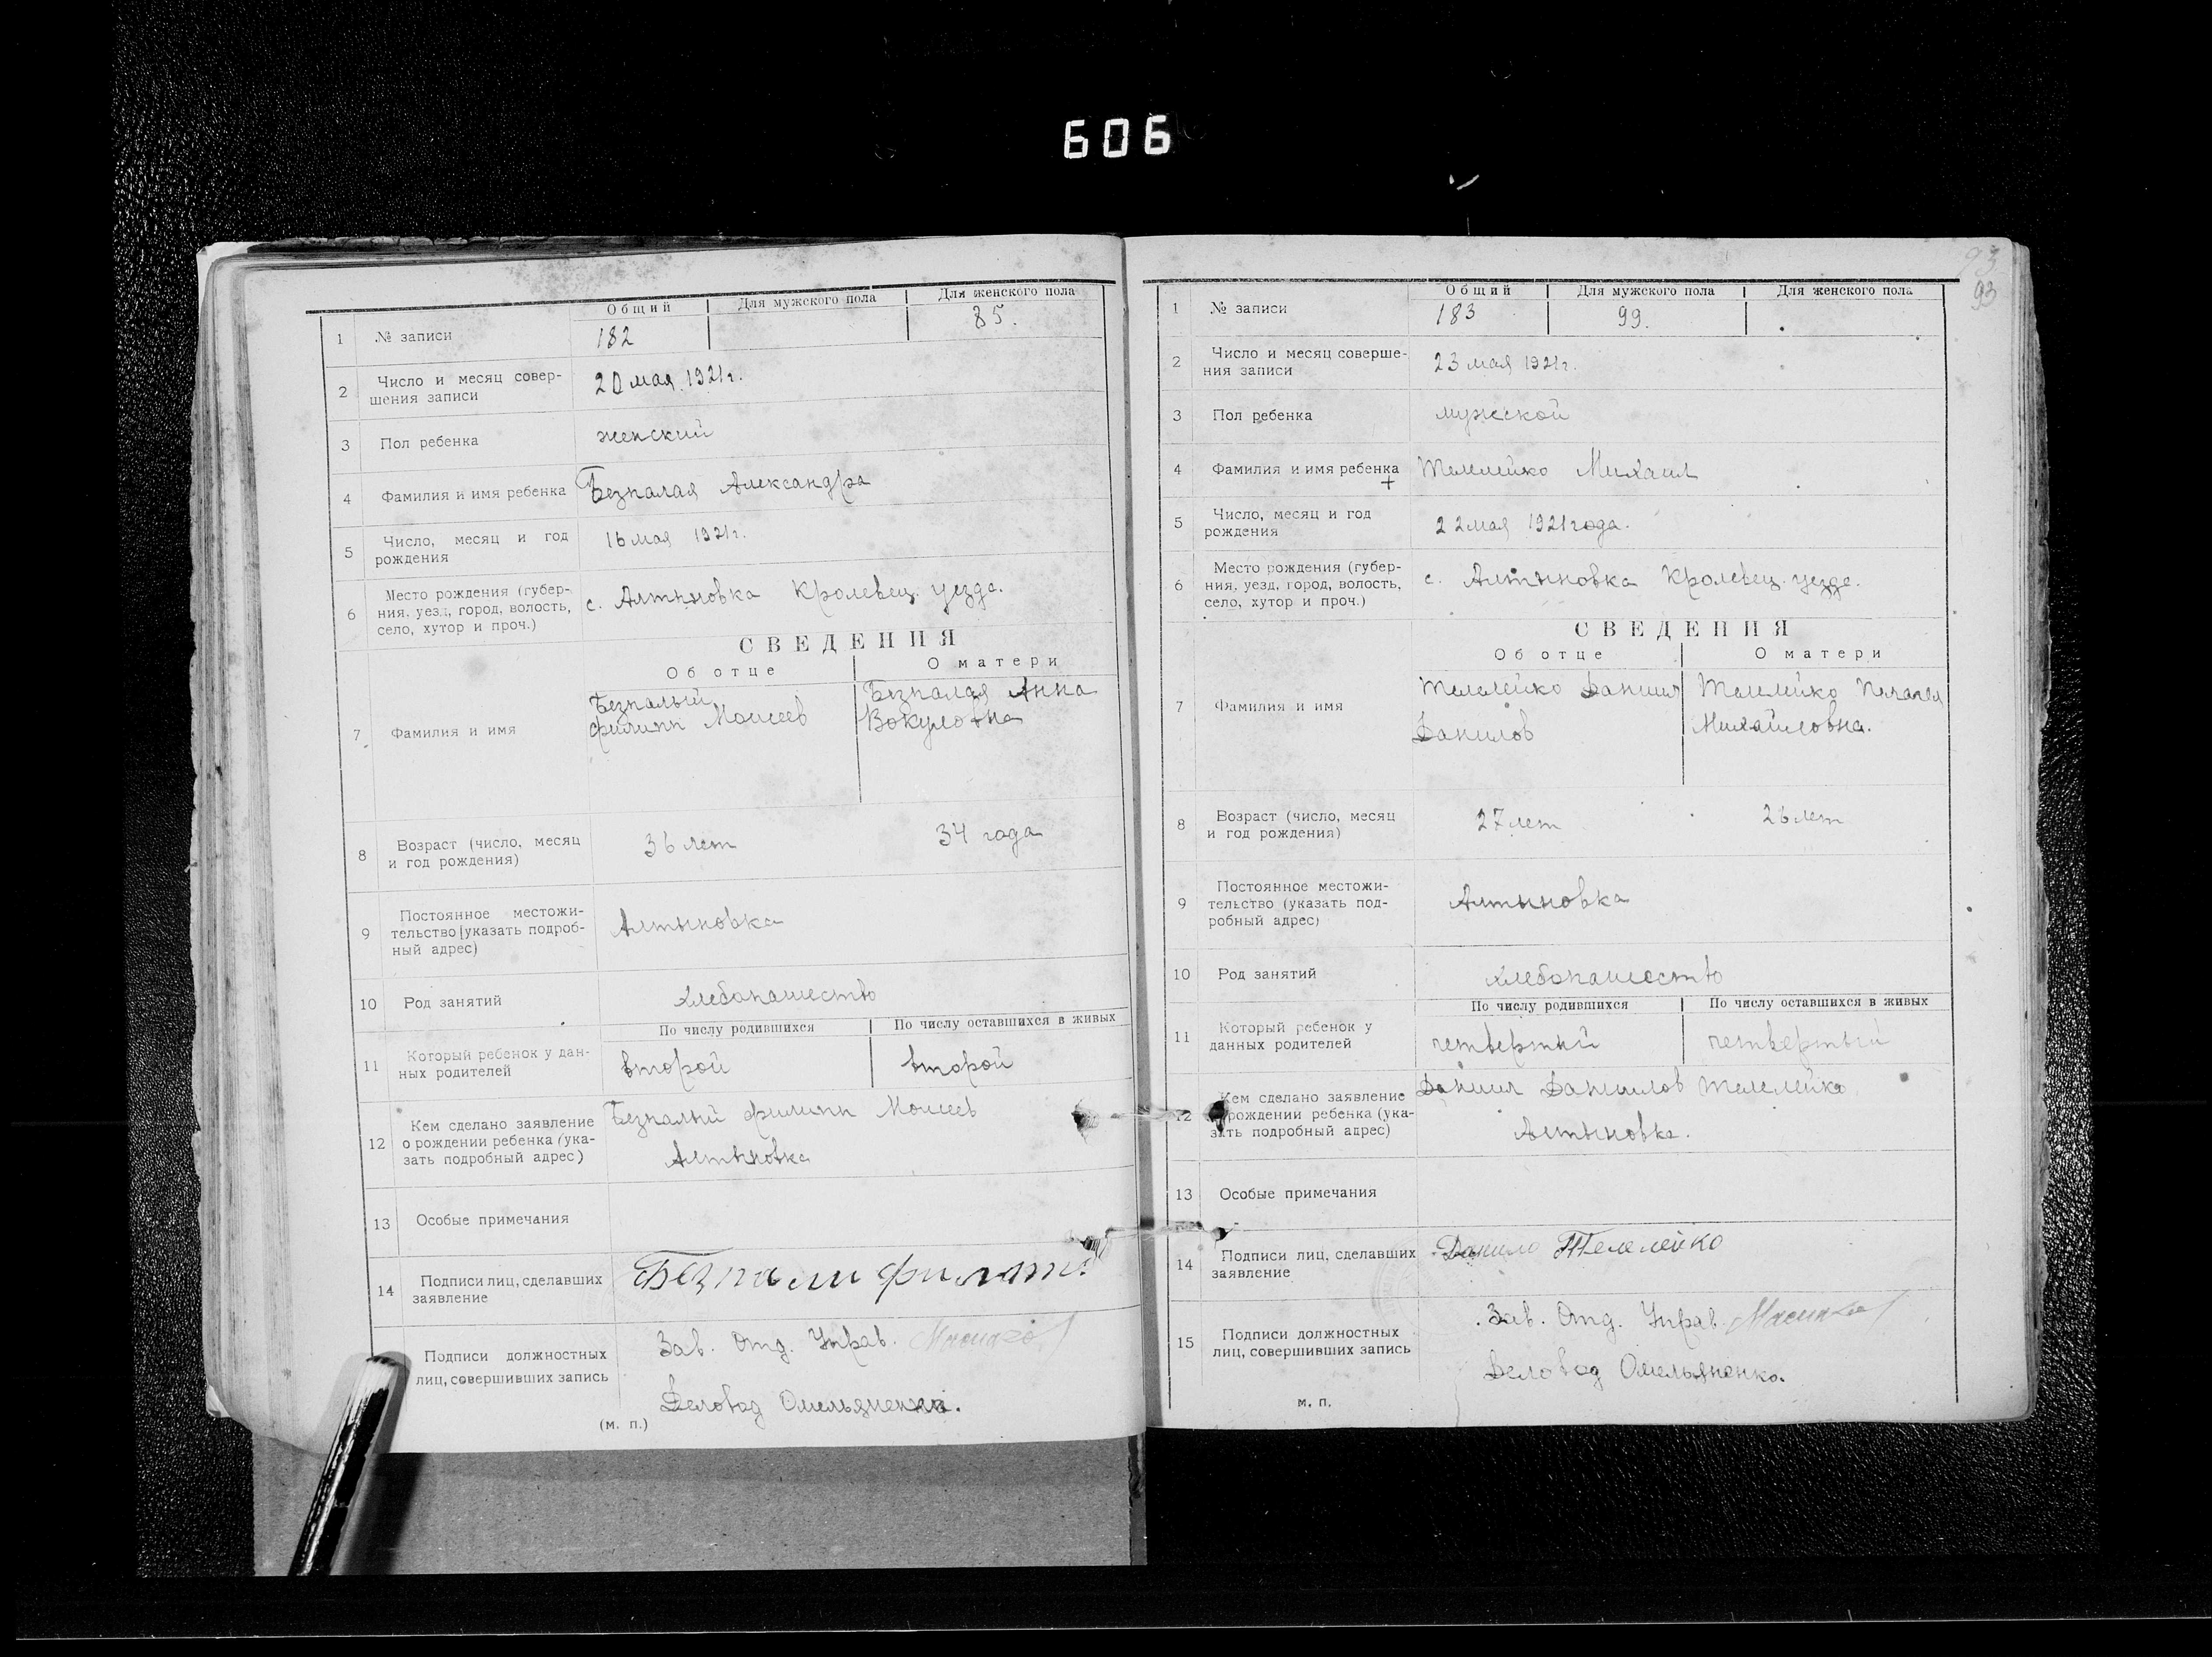 606
Общий Для мужского пола Для женского пола
1 № записи 182 85.
2 Число и месяц совер-
шения записи 20 мая 1921 г.
3 Пол ребенка женский
4 Фамилия и имя ребенка Безпалая Александра
5 Число, месяц и год
рождения 16 мая 1921 г.
6 Место рождения (губер-
ния, уезд, город, волость,
село, хутор и проч.) с. Алтыновка Кролевец. уезда.
СВЕДЕНИЯ
Об отце О матери
7 Фамилия и имя
Безпалый Безпалая Анна
Филипп Моисеев Вокуловна
8 Возраст (число, месяц
и год рождения) 36 лет 34 года
9 Постоянное местожи-
тельство (указать подроб-
ный адрес) Алтыновка
10 Род занятий хлебопашество
По числу родившихся По числу оставшихся в живых
11 Который ребенок у дан-
ных родителей второй второй
12 Кем сделано заявление
о рождении ребенка (ука-
зать подробный адрес)
Безпалый Филипп Моисеев
Алтыновка
13 Особые примечания
14 Подписи лиц, сделавших
заявление
Подписи должностных
лиц, совершивших запись
Зав. Отд. Управ.
Деловод Омельяненко.
(м. п.)
93
93
Общий Для мужского пола Для женского пола
1 № записи 183 99.
2 Число и месяц соверше-
ния записи 23 мая 1921 г.
3 Пол ребенка мужской
4 Фамилия и имя ребенка Телелейко Михаил
+
5 Число, месяц и год
рождения 22 мая 1921 года.
6 Место рождения (губер-
ния, уезд, город, волость,
село, хутор и проч.) с. Алтыновка Кролевец. уезда.
СВЕДЕНИЯ
Об отце О матери
7 Фамилия и имя
Телелейко Даниил Телелейко
Данилов Михайловна.
8 Возраст (число, месяц
и год рождения) 27 лет 26 лет
9 Постоянное местожи-
тельство (указать под-
робный адрес) Алтыновка
10 Род занятий хлебопашество
По числу родившихся По числу оставшихся в живых
11 Который ребенок у
данных родителей четвертый четвертый
12 Кем сделано заявление
о рождении ребенка (ука-
зать подробный адрес)
Даниил Данилов Телелейко
Алтыновка.
13 Особые примечания
14 Подписи лиц, сделавших
заявление Данило Телелейко
15 Подписи должностных
лиц, совершивших запись
Зав. Отд. Управ.
Деловод Омельяненко.
м. п.